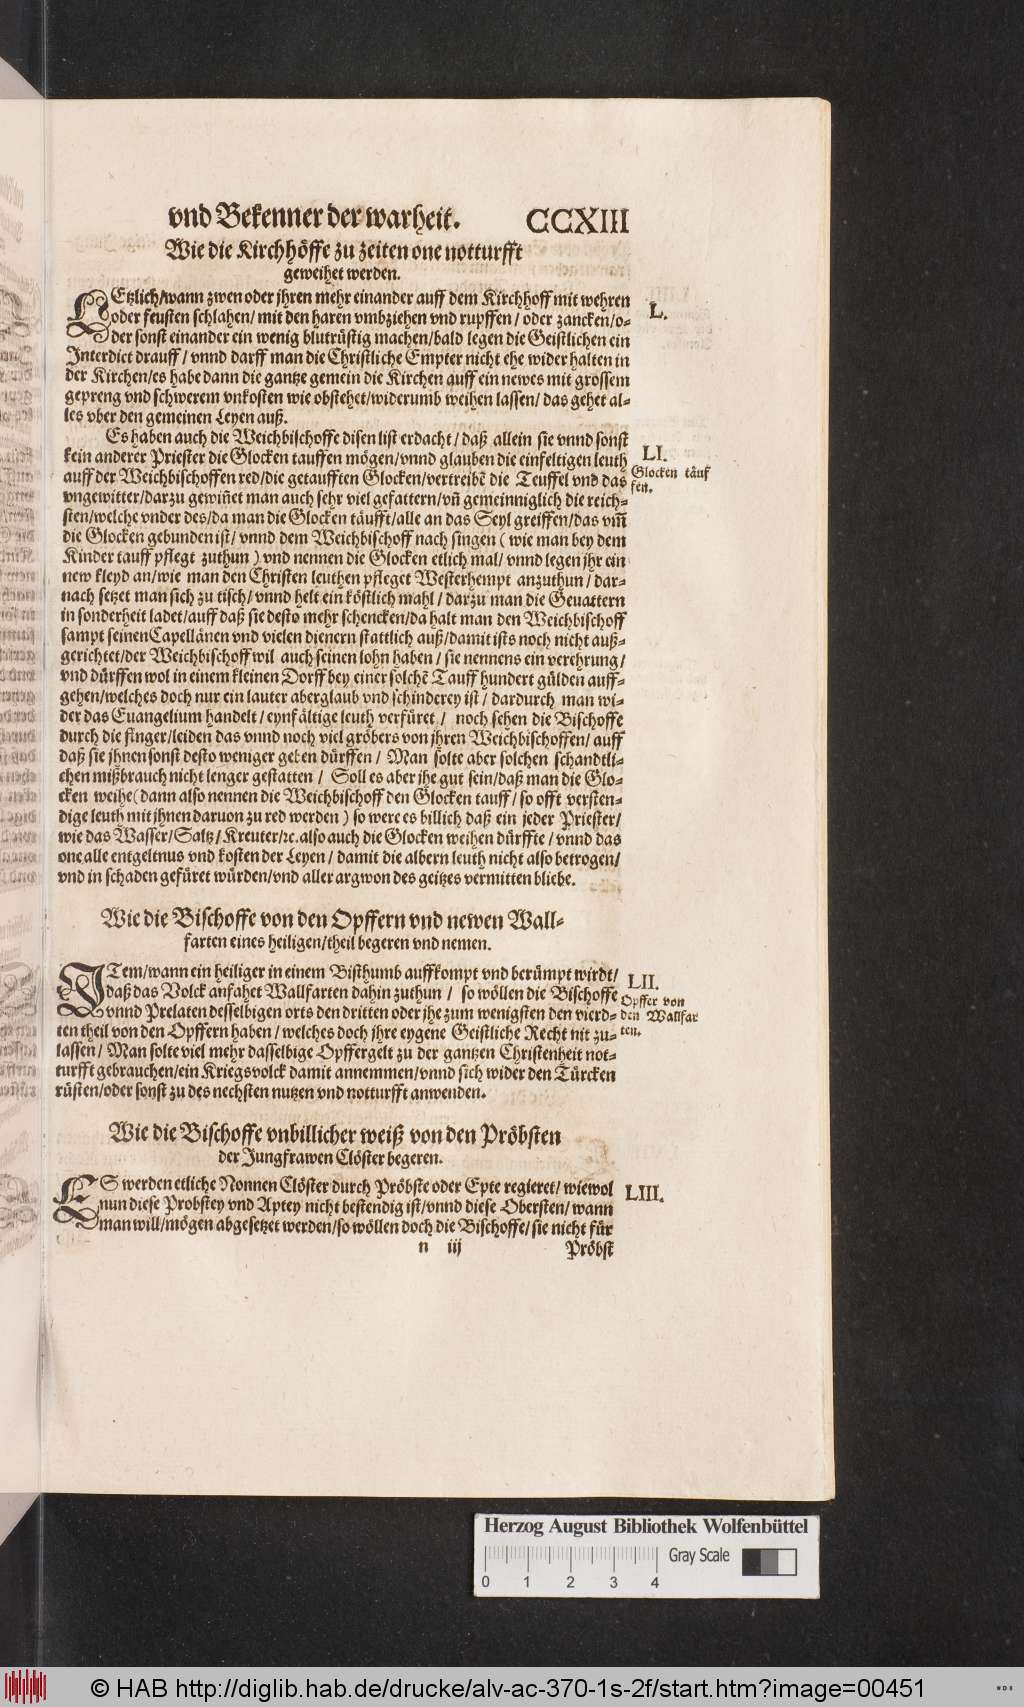 vnd Bekenner der warheit. CCXIII
Wie die Kirchhöffe zu zeiten one notturfft
geweihet werden.
LEtzlich/wann zwen oder jhren mehr einander auff dem Kirchhoff mit wehren
oder feusten schlahen/ mit den haren vmbziehen vnd rupffen/ oder zancken/o-
der sonst einander ein wenig blutrüstig machen/bald legen die Geistlichen ein
Interdict drauff/ vnnd darff man die Christliche Empter nicht ehe wider halten in
der Kirchen/es habe dann die gantze gemein die Kirchen auff ein newes mit grossem
gepreng vnd schwerem vnkosten wie obstehet/widerumb weihen lassen/ das gehet al-
les vber den gemeinen Leyen auß.
L.
Es haben auch die Weichbischoffe disen list erdacht/ daß allein sie vnnd sonst
kein anderer Priester die Glocken tauffen mögen/vnnd glauben die einfeltigen leuth
auff der Weichbischoffen red/die getaufften Glocken/vertreibē die Teuffel vnd das
vngewitter/darzu gewiñet man auch sehr viel gefattern/vñ gemeinniglich die reich-
sten/welche vnder des/da man die Glocken täufft/alle an das Seyl greiffen/das vm̃
die Glocken gebunden ist/ vnnd dem Weichbischoff nach singen ( wie man bey dem
Kinder tauff pflegt zuthun ) vnd nennen die Glocken etlich mal/ vnnd legen jhr ein
new kleyd an/wie man den Christen leuthen pfleget Westerhempt anzuthun/ dar-
nach setzet man sich zu tisch/ vnnd helt ein köstlich mahl/ darzu man die Geuattern
in sonderheit ladet/auff daß sie desto mehr schencken/da halt man den Weichbischoff
sampt seinen Capellänen vnd vielen dienern stattlich auß/damit ists noch nicht auß-
gerichtet/der Weichbischoff wil auch seinen lohn haben/ sie nennens ein verehrung/
vnd dürffen wol in einem kleinen Dorff bey einer solchē Tauff hundert gülden auff-
gehen/welches doch nur ein lauter aberglaub vnd schinderey ist/ dardurch man wi-
der das Euangelium handelt/ eynfältige leuth verfüret/ noch sehen die Bischoffe
durch die finger/leiden das vnnd noch viel gröbers von jhren Weichbischoffen/ auff
daß sie jhnen sonst desto weniger geben dürffen/ Man solte aber solchen schandtli-
chen mißbrauch nicht lenger gestatten/ Soll es aber jhe gut sein/daß man die Glo-
cken weihe (dann also nennen die Weichbischoff den Glocken tauff/ so offt versten-
dige leuth mit jhnen daruon zu red werden ) so were es billich daß ein jeder Priester/
wie das Wasser/Saltz/Kreuter/ꝛc. also auch die Glocken weihen dürffte/ vnnd das
one alle entgeltnus vnd kosten der Leyen/ damit die albern leuth nicht also betrogen/
vnd in schaden gefüret würden/vnd aller argwon des geitzes vermitten bliebe.
LI.
Glocken täuf
fen.
Wie die Bischoffe von den Opffern vnd newen Wall-
farten eines heiligen/theil begeren vnd nemen.
ITem/wann ein heiliger in einem Bisthumb auffkompt vnd berümpt wirdt/
daß das Volck anfahet Wallfarten dahin zuthun/ so wöllen die Bischoffe
vnnd Prelaten desselbigen orts den dritten oder jhe zum wenigsten den vierd-
ten theil von den Opffern haben/ welches doch jhre eygene Geistliche Recht nit zu-
lassen/ Man solte viel mehr dasselbige Opffergelt zu der gantzen Christenheit not-
turfft gebrauchen/ein Kriegsvolck damit annemmen/vnnd sich wider den Türcken
rüsten/oder sonst zu des nechsten nutzen vnd notturfft anwenden.
LII.
Opffer von
den Wallfar
ten.
Wie die Bischoffe vnbillicher weiß von den Pröbsten
der Jungfrawen Clöster begeren.
ES werden etliche Nonnen Clöster durch Pröbste oder Epte regieret/ wiewol
nun diese Probstey vnd Aptey nicht bestendig ist/vnnd diese Obersten/ wann
man will/mögen abgesetzet werden/so wöllen doch die Bischoffe/ sie nicht für
LIII.
n iij Pröbst
Herzog August Bibliothek Wolfenbüttel
Gray Scale
0 1 2 3 4
© HAB http://diglib.hab.de/drucke/alv-ac-370-1s-2f/start.htm?image=00451